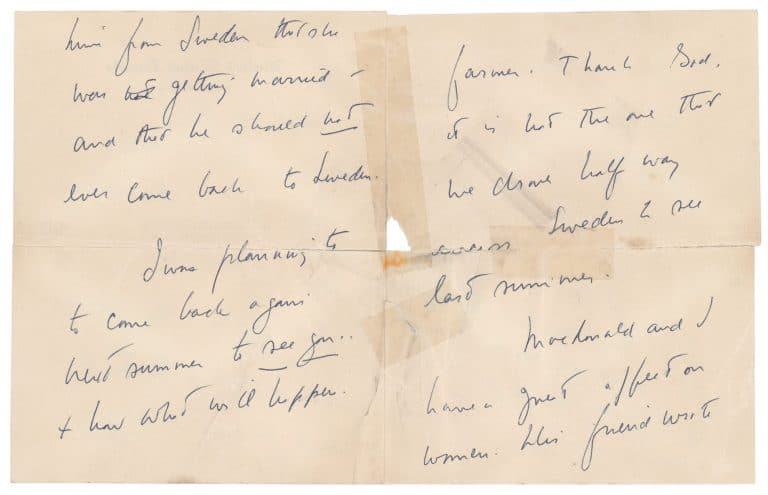 him from Sweden that she
was getting married -
and that he should not
ever come back to Sweden.
I was planning to
to come back again
next summer to see you..
+ now what will happen.
farmer. Thank God,
it is not the one that
we drove half way
across Sweden to see
last summer.
Macdonald and I
have a great affect on
women. His friend wrote